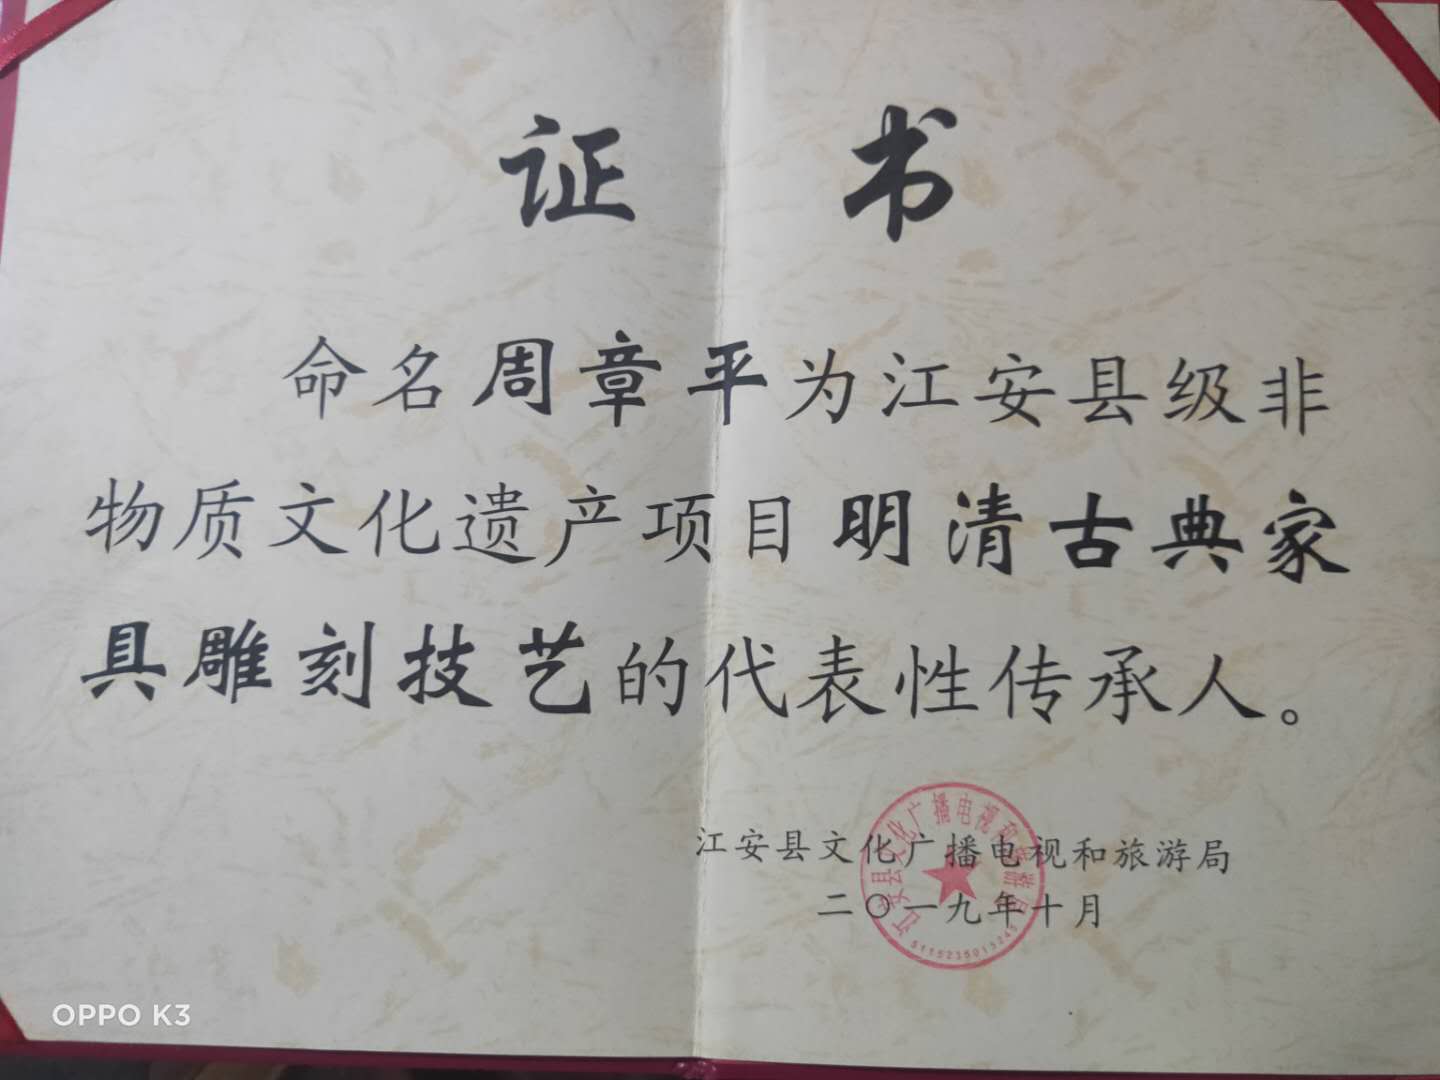 证 书
命名周章平为江安县级非
物质文化遗产项目明清古典家
具雕刻技艺的代表性传承人。
江安县文化广播电视和旅游局
二〇一九年十月
江安县文化广播电视和旅游局
5115235013245
OPPO K3